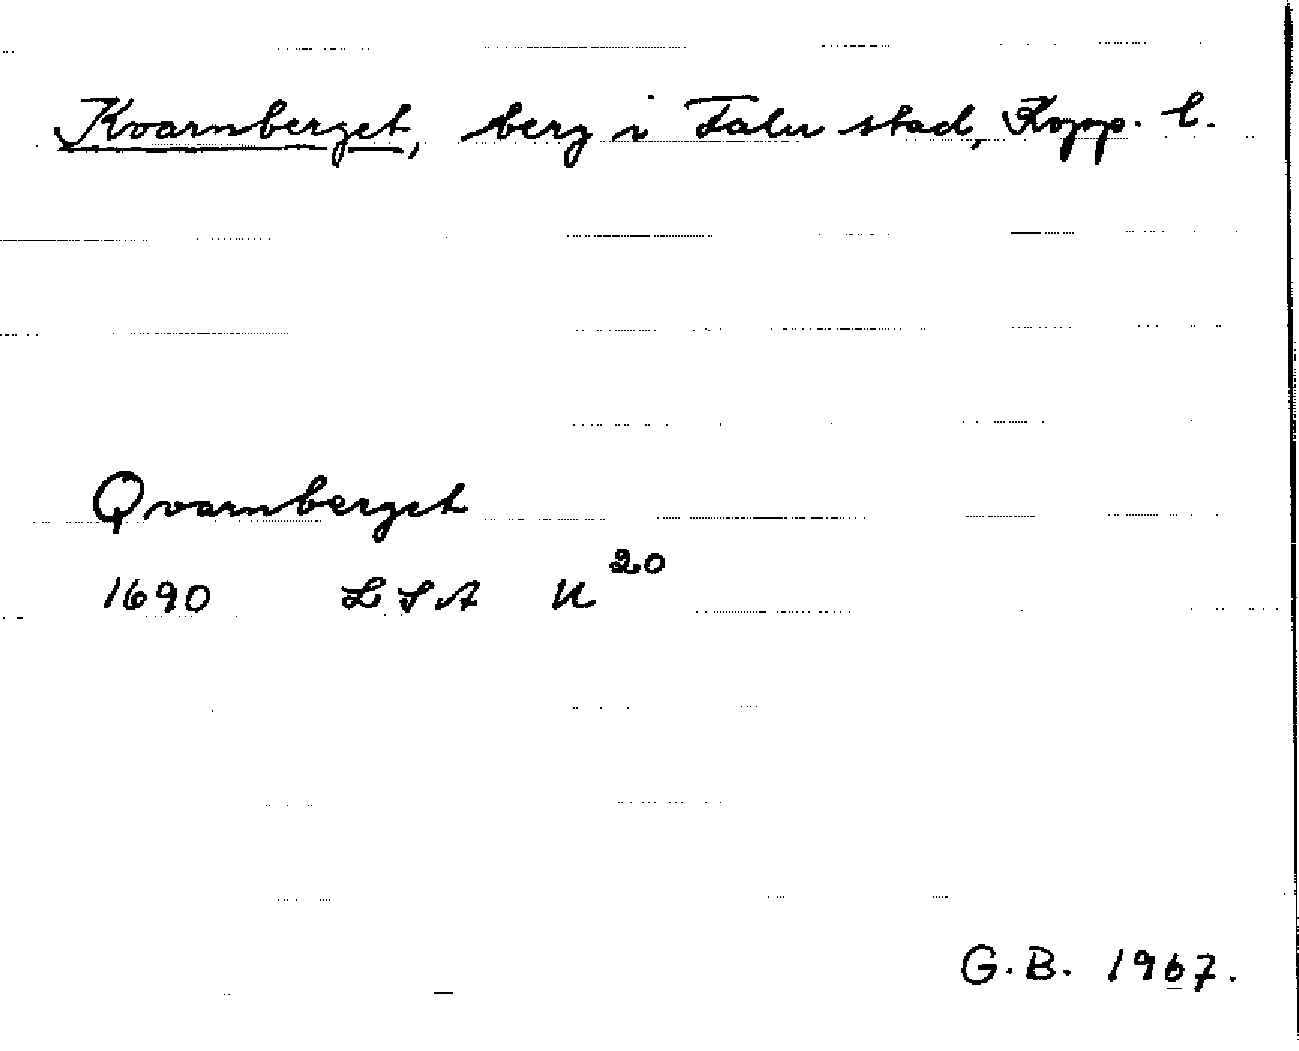 Kvarnberget, berg i Falu stad, Kopp. l.
Qvarnberget
1690 LSA U 20
G.B. 1967.